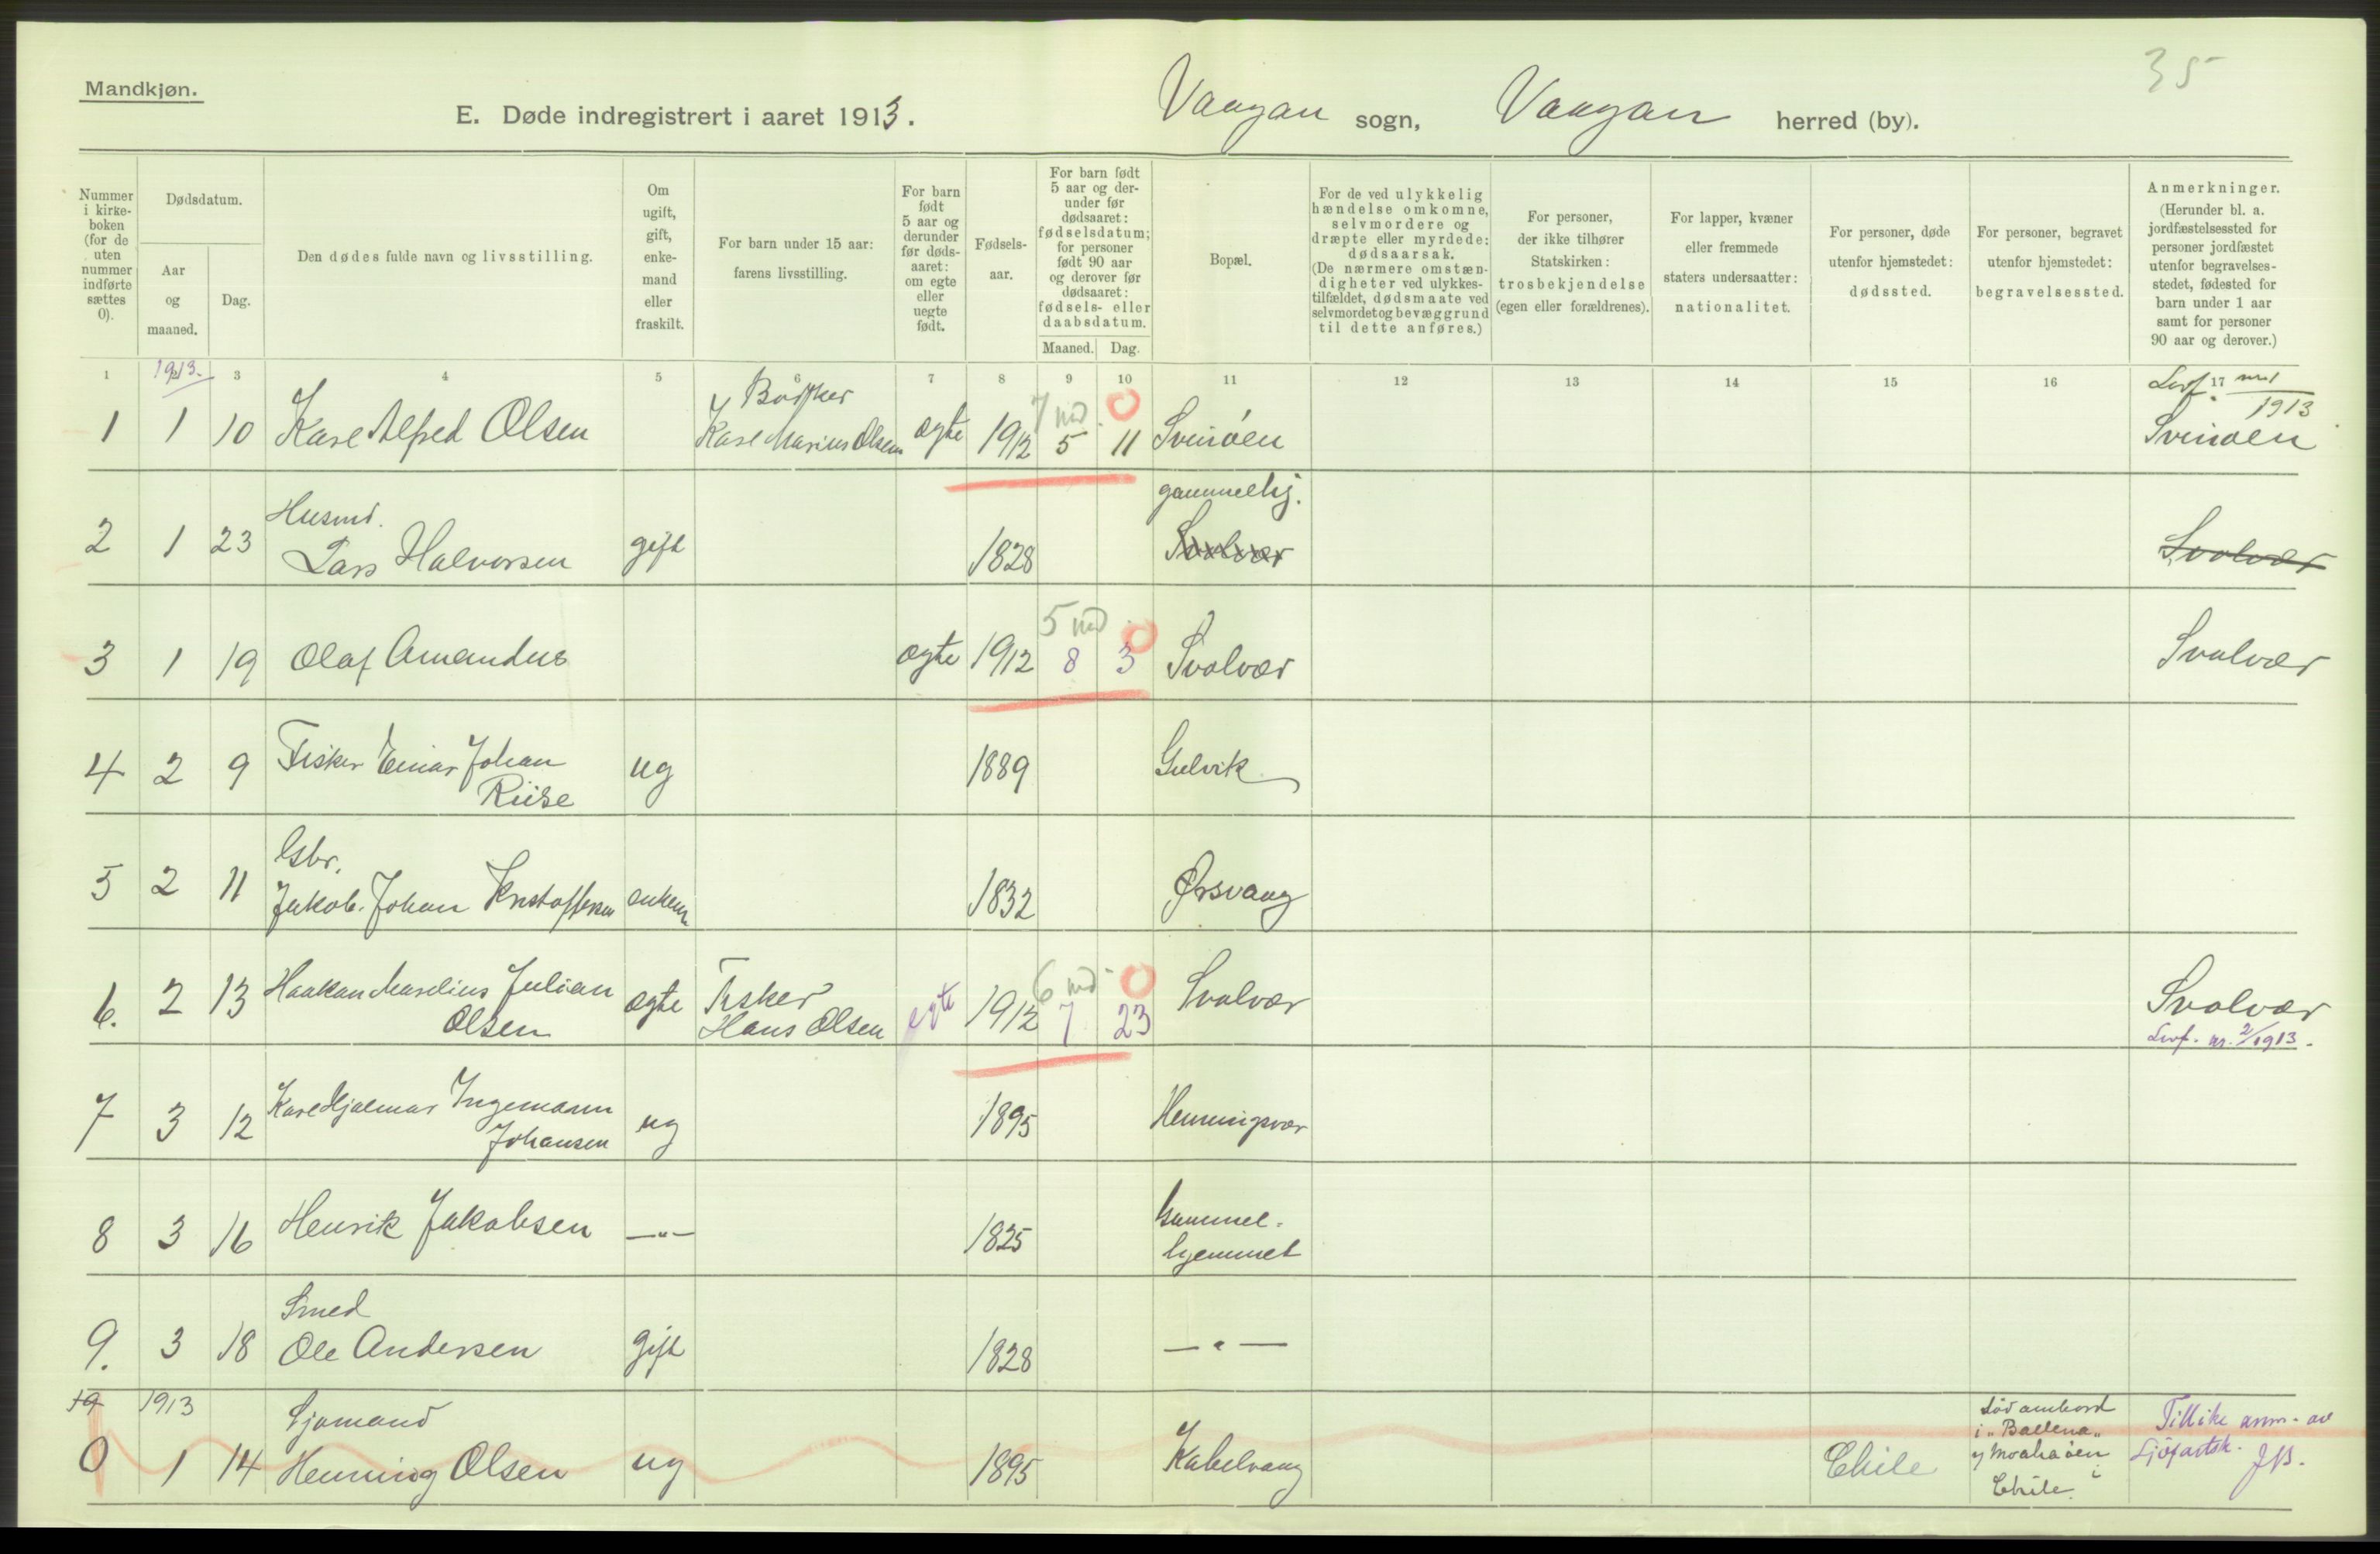 35
Mandkjøn.
E. Døde indregistrert i aaret 1913.
Vaagan sogn, Vaagan herred (by).
Nummer i kirke-boken (for de uten nummer indførte sættes 0).
Dødsdatum.
Aar og maaned.
Dag.
Den dødes fulde navn og livsstilling.
Om ugift, gift, enke-mand eller fraskilt.
For barn under 15 aar: farens livsstilling.
For barn født 5 aar og derunder før døds-aaret: om egte eller uegte født.
Fødsels-aar.
For barn født 5 aar og der-under før dødsaaret: fødselsdatum; for personer født 90 aar og derover før dødsaaret: fødsels- eller daabsdatum.
Maaned. Dag.
Bopæl.
For de ved ulykkelig hændelse omkomne, selvmordere og dræpte eller myrdede: dødsaarsak. (De nærmere omstæn-digheter ved ulykkes-tilfældet, dødsmaate ved selvmordet og bevæggrund til dette anføres.)
For personer, der ikke tilhører Statskirken: trosbekjendelse (egen eller forældrenes).
For lapper, kvæner eller fremmede staters undersaatter: nationalitet.
For personer, døde utenfor hjemstedet: dødssted.
For personer, begravet utenfor hjemstedet: begravelsessted.
Anmerkninger. (Herunder bl. a. jordfæstelsessted for personer jordfæstet utenfor begravelses-stedet, fødested for barn under 1 aar samt for personer 90 aar og derover.)
1 3 4 5 6 7 8 9 10 11 12 13 14 15 16 17
1913.
1 1 10 Karl Alfred Olsen Karl Marius Olsen egte 1912 7 md. 5 0 11 Svinöen 1913 Svinöen
2 1 23 Husmd. Lars Halvorsen gift 1828 gammelhj. Svolvær Svolvær
3 1 19 Olaf Amandus egte 1912 5 md 8 0 3 Svolvær Svolvær
4 2 9 Fisker Einar Johan Riise ug 1889 Gulvik
5 2 11 Gbr. Jakob Johan Kristoffersen enkem 1832 Ørsvaag
6. 2 13 Haakan Marelius Julian Olsen egte Fisker Hans Olsen egte 1912 6 md 7 0 23 Svolvær Svolvær
Levf. nr. 2/1913.
7 3 12 Karl Hjalmar Ingemann Johansen ug 1895 Henningsvær
8 3 16 Henrik Jakobsen —"— 1825 Gammel-hjemmet
9. 3 18 Smed Ole Andersen gift 1828 —"—
10 1913
0 1 14 Sjömand Henning Olsen ug 1895 Kabelvaag Chile död ombord i "Ballena" i Chile. Tillike anm. av Sjöfartsk. JB.